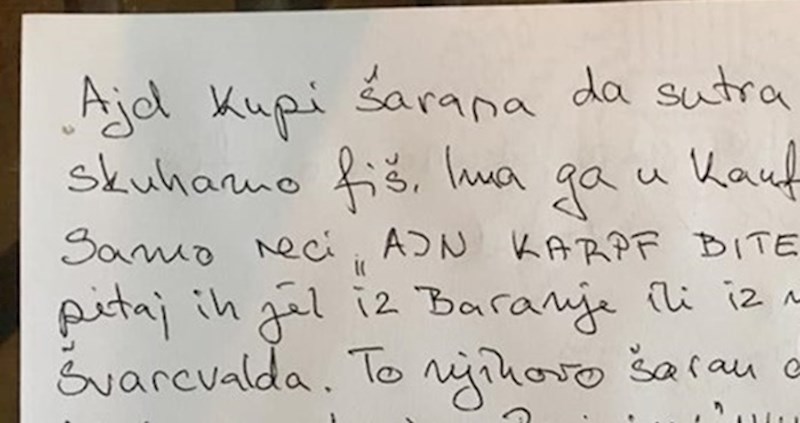 Ajd kupi šarana da sutra
skuhamo fiš. Ima ga u Kauf
Samo reci „AJN KARPF BITE
pitaj ih jel iz Baranje ili iz
Švarcvalda. To njihovo šaran